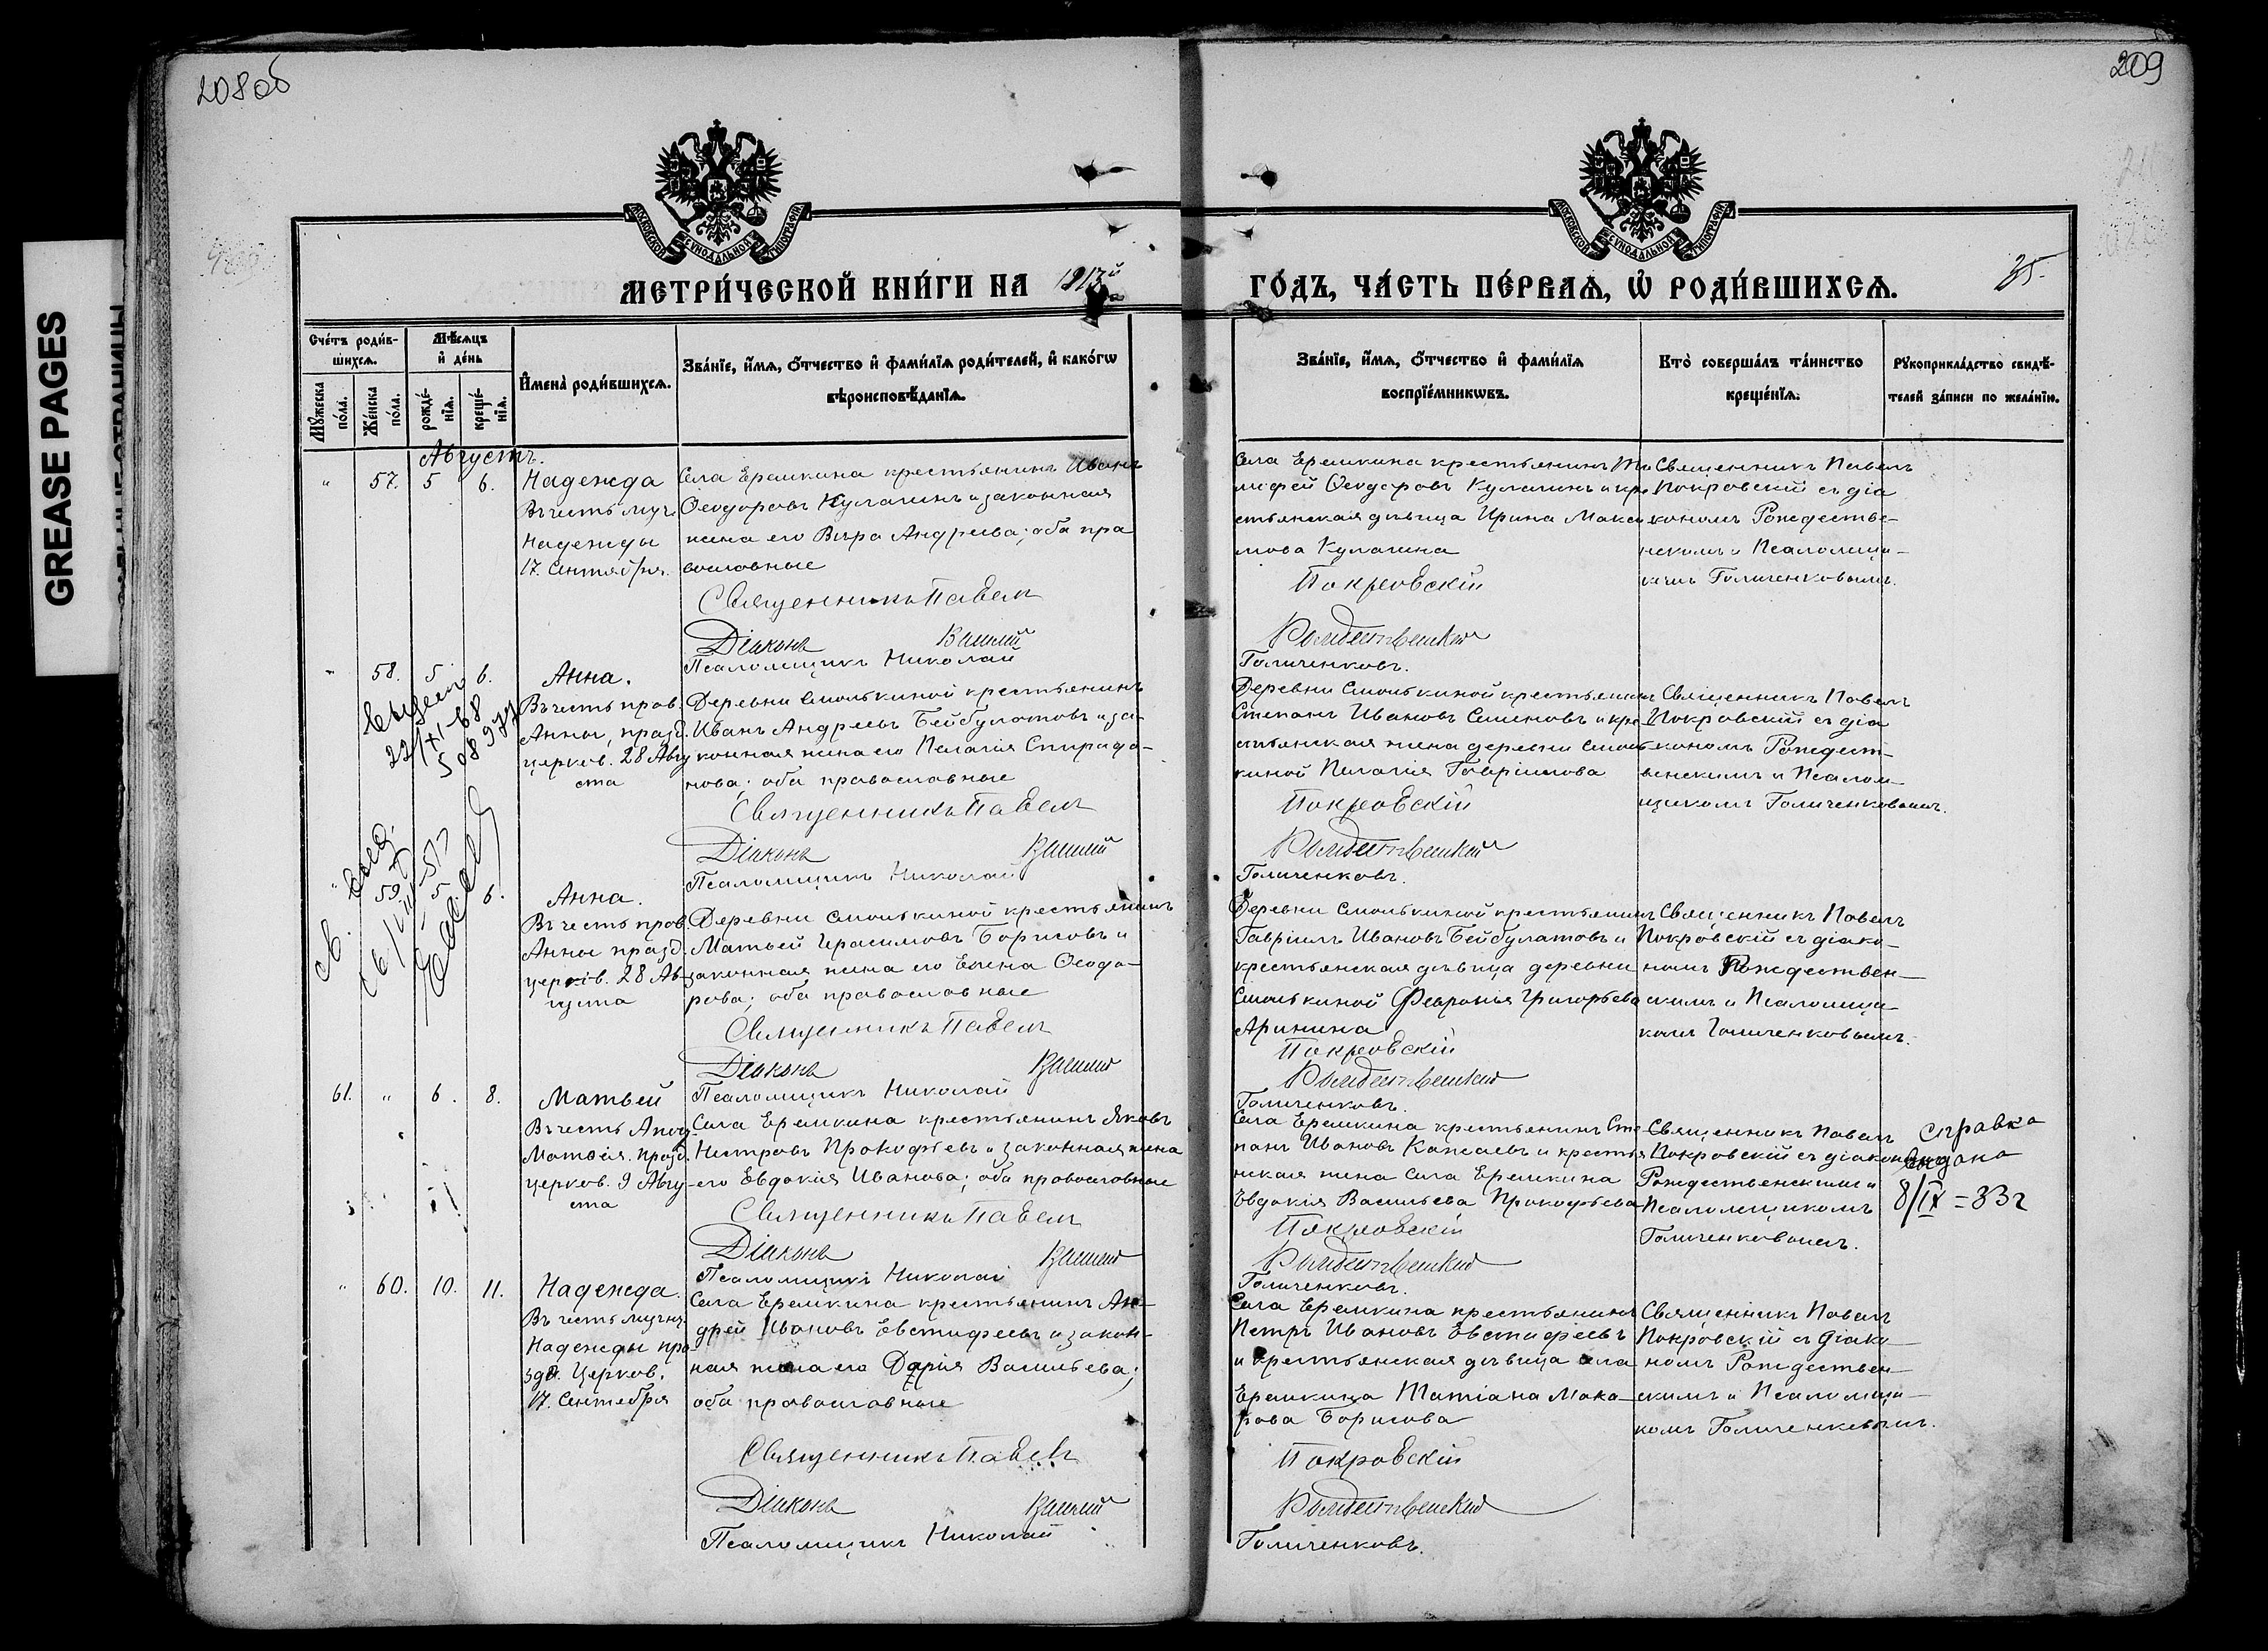 208об
209
GREASE PAGES
МОСКОВСКОЙ СѴНОДАЛЬНОЙ ТИПОГРАФІИ
МОСКОВСКОЙ СѴНОДАЛЬНОЙ ТИПОГРАФІИ
МЕТРИ́ЧЕСКОЙ КНИ́ГИ НА 1913й
ГО́ДЪ, ЧА́СТЬ ПЕ́РВАѦ, Ѡ҆ РОДИ́ВШИХСѦ.
35.
Сче́тъ роди́в-
шихсѧ.
Мꙋ́жеска по́ла.
Же́нска по́ла.
Мѣ́сѧцъ и҆ де́нь
рожде́-
нїѧ.
креще́-
нїѧ.
И҆мена̀ роди́вшихсѧ.
Зва́нїе, и҆́мѧ, ѻ҆́тчество и҆ фами́лїѧ роди́телей, и҆ како́гѡ
вѣроисповѣ́данїѧ.
Зва́нїе, и҆́мѧ, ѻ҆́тчество и҆ фами́лїѧ
воспрїе́мникѡвъ.
Кто̀ соверша́лъ та́инство
креще́нїѧ.
Рꙋкоприкла́дство свидѣ́-
телей за́писи по жела́нїю.
Августъ.
" 57. 5 6.
Надежда
Въ честь муч.
Надежды
17. Сентября.
Села Еремкина крестьянинъ Иванъ
Ѳеодоровъ Кулагинъ и законная
жена его Вѣра Андреева; оба пра
вославные
Священникъ Павелъ
Діаконъ Василій
Псаломщикъ Николай
Села Еремкина крестьянинъ Ти
мофей Ѳеодоровъ Кулагинъ и кре
стьянская дѣвица Ирина Макси
мова Кулагина
Покровскій
Рождественскій
Голиченковъ.
Священникъ Павелъ
Покровскій съ діа
кономъ Рождестве-
нскимъ и Псаломщи-
комъ Голиченковымъ.
58. 5 6.
22/XI-68
Анна.
Въ честь прав.
Анны, празд.
церков. 28 Авгу
ста
Деревни Смолькиной крестьянинъ
Иванъ Андреевъ Бейбулатовъ и за-
конная жена его Пелагія Спиридо-
нова; оба православные
Священникъ Павелъ
Діаконъ Василій
Псаломщикъ Николай
Деревни Смолькиной крестьянинъ
Степанъ Ивановъ Симоновъ и кре
стьянская жена деревни Смоль
киной Пелагія Гавріилова
Покровскій
Рождественскій
Голиченковъ.
Священникъ Павелъ
Покровскій съ діа
кономъ Рождест-
венскимъ и Псалом-
щикомъ Голиченковымъ.
" 59. 5 6.
Анна.
Въ честь прав.
Анны празд.
церков. 28 Ав-
густа
Деревни Смолькиной крестьянинъ
Матвей Герасимовъ Борисовъ и
законная жена его Елена Ѳеодо-
рова; оба православные
Священникъ Павелъ
Діаконъ Василій
Псаломщикъ Николай
Деревни Смолькиной крестьянинъ
Гавріилъ Ивановъ Бейбулатовъ и
крестьянская дѣвица деревни
Смолькиной Февронья Григорьева
Аринина
Покровскій
Рождественскій
Голиченковъ.
Священникъ Павелъ
Покровскій съ діако-
номъ Рождествен-
скимъ и Псаломщи-
комъ Голиченковымъ.
61. " 6. 8.
Матвей
Въ честь Апос.
Матѳія. празд.
церков. 9 Авгу-
ста
Села Еремкина крестьянинъ Яковъ
Нестровъ Прокофьевъ и законная жена
его Евдокія Иванова; оба православные
Священникъ Павелъ
Діаконъ Василій
Псаломщикъ Николай
Села Еремкина крестьянинъ Сте
панъ Ивановъ Капаевъ и крестья
нская жена Села Еремкина
Евдокія Васильева Прокофьева
Покровскій
Рождественскій
Голиченковъ.
Священникъ Павелъ
Покровскій съ діакономъ
Рождественскимъ и
Псаломщикомъ
Голиченковымъ.
справка
выдана
8/IX=33г
" 60. 10. 11.
Надежда.
Въ честь мучн.
Надежды пра
здв. Церков.
17. Сентября
Села Еремкина крестьянинъ Ан-
дрей Ивановъ Евстифеевъ и закон-
ная жена его Дарія Васильева;
оба православные
Священникъ Павелъ
Діаконъ Василій
Псаломщикъ Николай
Села Еремкина крестьянинъ
Петръ Ивановъ Евстифеевъ
и крестьянская дѣвица села
Еремкина Татіана Мака-
рова Борисова
Покровскій
Рождественскій
Голиченковъ.
Священникъ Павелъ
Покровскій съ діако-
номъ Рождествен-
скимъ и Псаломщи-
комъ Голиченковымъ.